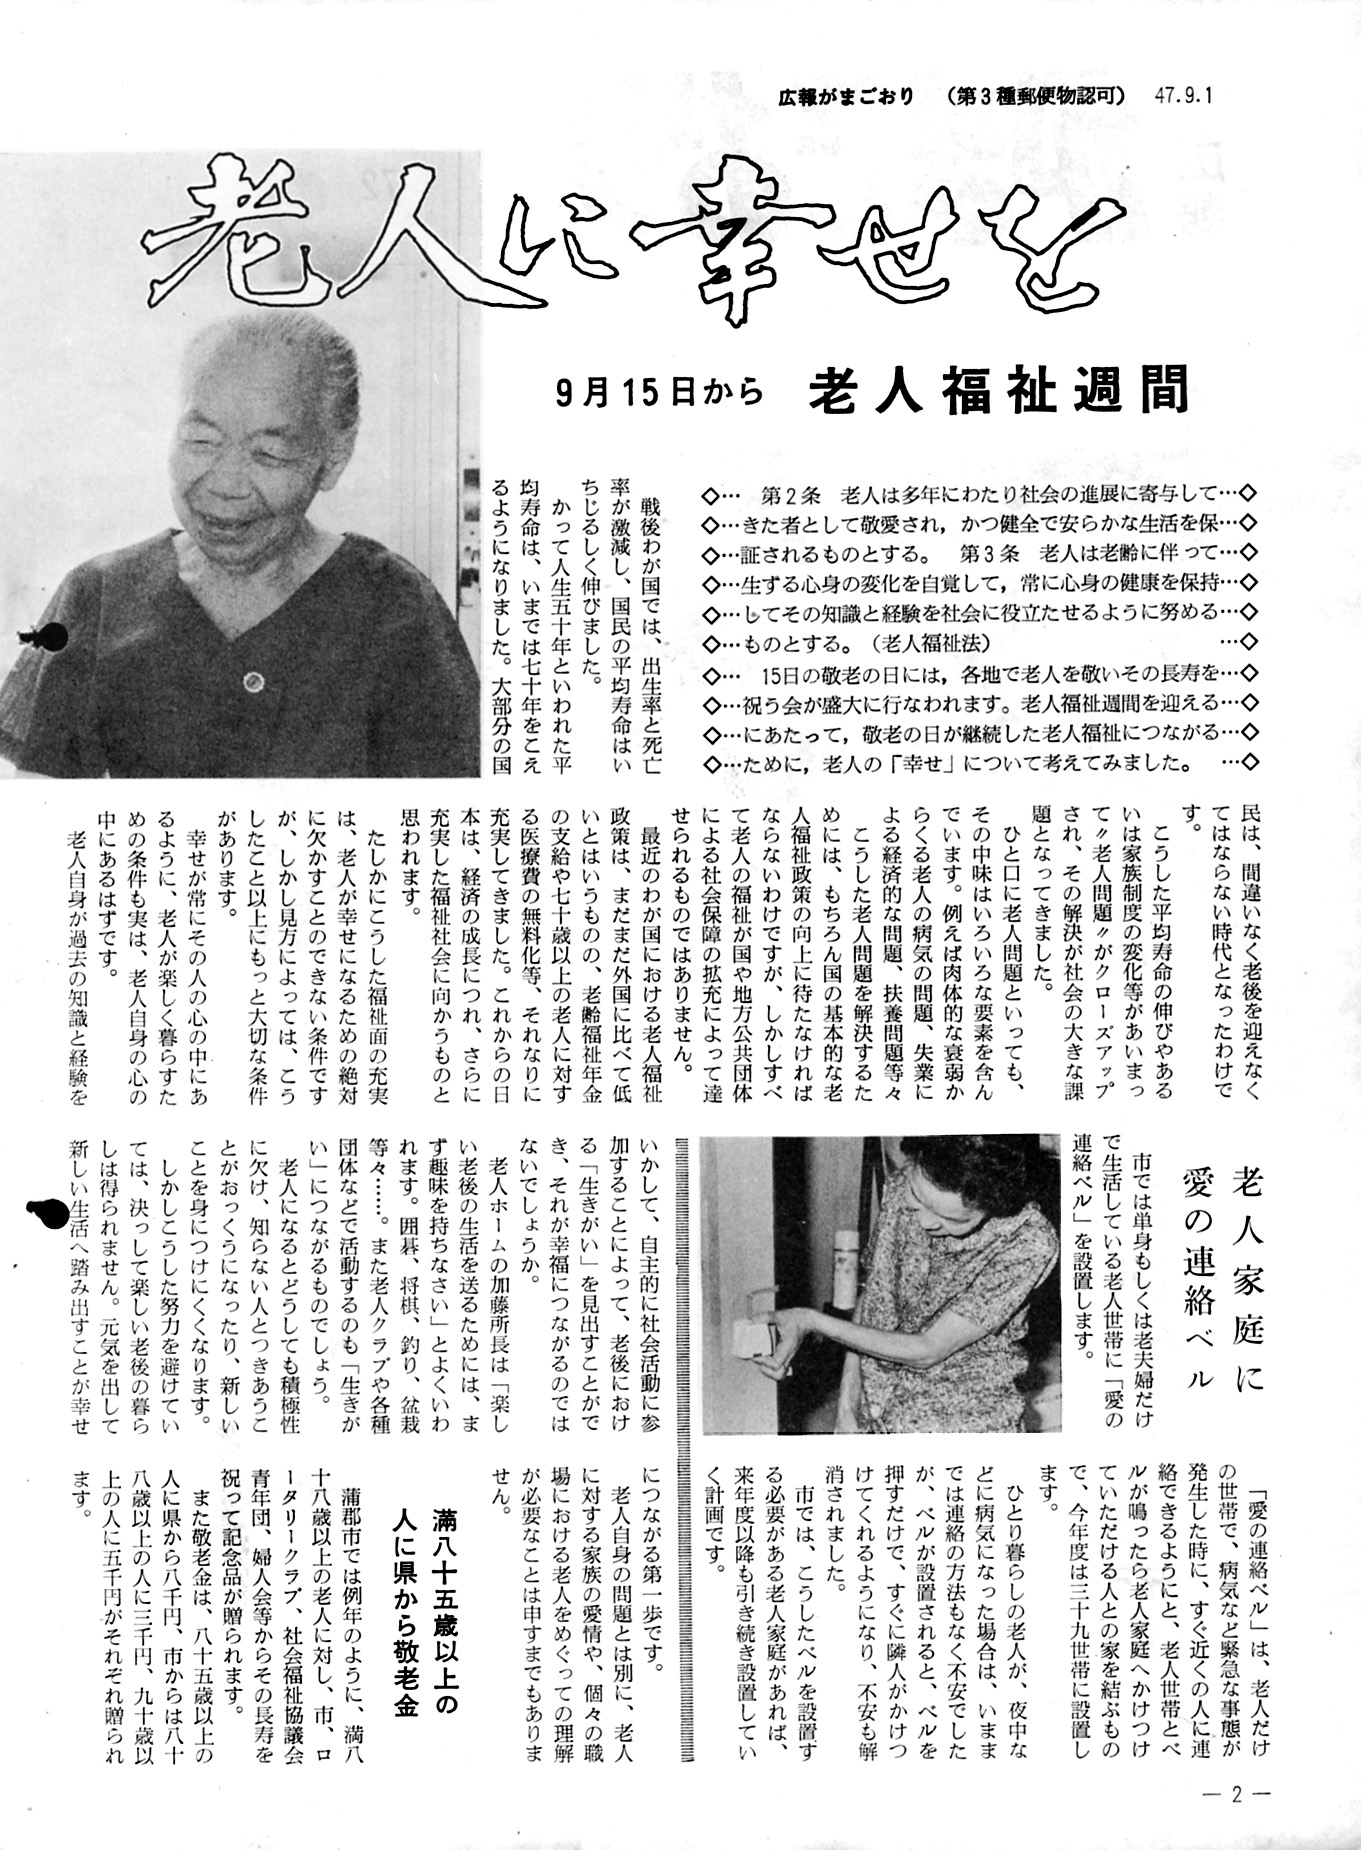 広報がまごおり　（第3種郵便物認可）　47.9.1
老人に幸せを
9月15日から　老人福祉週間
◇…　第2条　老人は多年にわたり社会の進展に寄与して…◇
◇…きた者として敬愛され，かつ健全で安らかな生活を保…◇
◇…証されるものとする。　第3条　老人は老齢に伴って…◇
◇…生ずる心身の変化を自覚して，常に心身の健康を保持…◇
◇…してその知識と経験を社会に役立たせるように努める…◇
◇…ものとする。（老人福祉法）　…◇
◇…　15日の敬老の日には，各地で老人を敬いその長寿を…◇
◇…祝う会が盛大に行なわれます。老人福祉週間を迎える…◇
◇…にあたって，敬老の日が継続した老人福祉につながる…◇
◇…ために，老人の「幸せ」について考えてみました。　…◇
戦後わが国では、出生率と死亡
率が激減し、国民の平均寿命はい
ちじるしく伸びました。
かって人生五十年といわれた平
均寿命は、いまでは七十年をこえ
るようになりました。大部分の国
民は、間違いなく老後を迎えなく
てはならない時代となったわけで
す。
こうした平均寿命の伸びやある
いは家族制度の変化等があいまっ
て〃老人問題〃がクローズアップ
され、その解決が社会の大きな課
題となってきました。
ひと口に老人問題といっても、
その中味はいろいろな要素を含ん
でいます。例えば肉体的な衰弱か
らくる老人の病気の問題、失業に
よる経済的な問題、扶養問題等々
こうした老人問題を解決するた
めには、もちろん国の基本的な老
人福祉政策の向上に待たなければ
ならないわけですが、しかしすべ
て老人の福祉が国や地方公共団体
による社会保障の拡充によって達
せられるものではありません。
最近のわが国における老人福祉
政策は、まだまだ外国に比べて低
いとはいうものの、老齢福祉年金
の支給や七十歳以上の老人に対す
る医療費の無料化等、それなりに
充実してきました。これからの日
本は、経済の成長につれ、さらに
充実した福祉社会に向かうものと
思われます。
たしかにこうした福祉面の充実
は、老人が幸せになるための絶対
に欠かすことのできない条件です
が、しかし見方によっては、こう
したこと以上にもっと大切な条件
があります。
幸せが常にその人の心の中にあ
るように、老人が楽しく暮らすた
めの条件も実は、老人自身の心の
中にあるはずです。
老人自身が過去の知識と経験を
いかして、自主的に社会活動に参
加することによって、老後におけ
る「生きがい」を見出すことがで
き、それが幸福につながるのでは
ないでしょうか。
老人ホームの加藤所長は「楽し
い老後の生活を送るためには、ま
ず趣味を持ちなさい」とよくいわ
れます。囲碁、将棋、釣り、盆栽
等々……。また老人クラブや各種
団体などで活動するのも「生きが
い」につながるものでしょう。
老人になるとどうしても積極性
に欠け、知らない人とつきあうこ
とがおっくうになったり、新しい
ことを身につけにくくなります。
しかしこうした努力を避けてい
ては、決っして楽しい老後の暮ら
しは得られません。元気を出して
新しい生活へ踏み出すことが幸せ
につながる第一歩です。
老人自身の問題とは別に、老人
に対する家族の愛情や、個々の職
場における老人をめぐっての理解
が必要なことは申すまでもありま
せん。
満八十五歳以上の
人に県から敬老金
蒲郡市では例年のように、満八
十八歳以上の老人に対し、市、ロ
ータリークラブ、社会福祉協議会
青年団、婦人会等からその長寿を
祝って記念品が贈られます。
また敬老金は、八十五歳以上の
人に県から八千円、市からは八十
八歳以上の人に三千円、九十歳以
上の人に五千円がそれぞれ贈られ
ます。
老人家庭に
愛の連絡ベル
市では単身もしくは老夫婦だけ
で生活している老人世帯に「愛の
連絡ベル」を設置します。
「愛の連絡ベル」は、老人だけ
の世帯で、病気など緊急な事態が
発生した時に、すぐ近くの人に連
絡できるようにと、老人世帯とベ
ルが鳴ったら老人家庭へかけつけ
ていただける人との家を結ぶもの
で、今年度は三十九世帯に設置し
ます。
ひとり暮らしの老人が、夜中な
どに病気になった場合は、いまま
では連絡の方法もなく不安でした
が、ベルが設置されると、ベルを
押すだけで、すぐに隣人がかけつ
けてくれるようになり、不安も解
消されました。
市では、こうしたベルを設置す
る必要がある老人家庭があれば、
来年度以降も引き続き設置してい
く計画です。
— 2 —